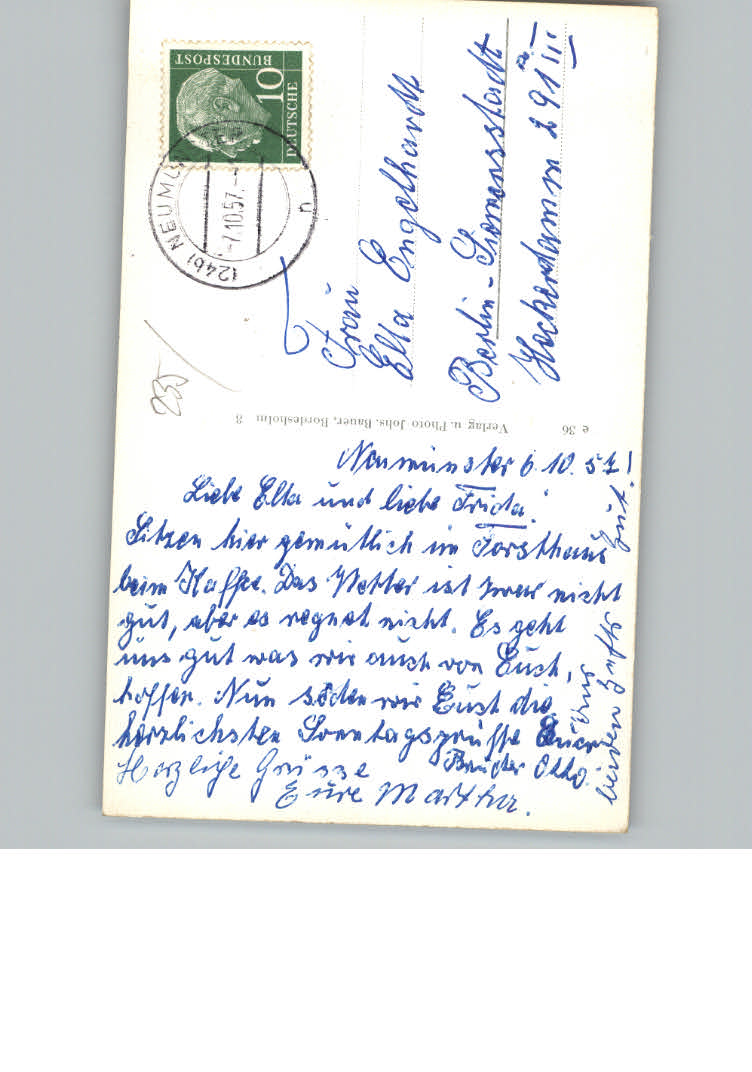 DEUTSCHE
BUNDESPOST
10
(24b) NEUMÜNSTER
-7.10.57.-
n
Frau
Ella Engelhardt
Berlin-Siemensstadt
Heckerdamm 291 III
235
e 36 Verlag u. Photo Johs. Bauer, Bordesholm 8
Neumünster 6.10.57!
Liebe Ella und liebe Frida!
Sitzen hier gemütlich im Forsthaus
beim Kaffee. Das Wetter ist zwar nicht
gut, aber es regnet nicht. Es geht
uns gut was wir auch von Euch
hoffen. Nun senden wir Euch die
herzlichsten Sonntagsgrüsse Euer
Bruder Otto.
Herzliche Grüsse
Eure Martha.
uns
beiden gut.